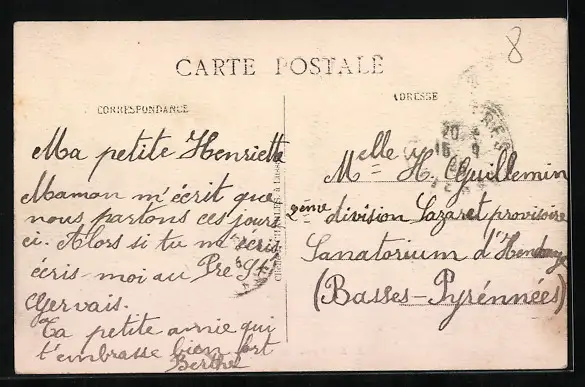 8
CARTE POSTALE
CORRESPONDANCE
ADRESSE
Ma petite Henriette
Maman m'écrit que
nous partons ces jours
ci. Alors si tu m'écris
écris-moi au Pré St
Gervais.
Ta petite amie qui
t'embrasse bien fort
Berthe
Melle H. Guillemin
2ème division Lazaret provisoire
Sanatorium d'Hendaye
(Basses-Pyrénnées)